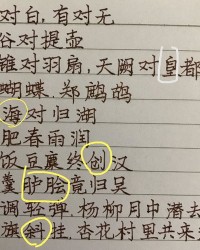 对白,有对无
谷对提壶
锥对羽扇,天阙对皇都
蝴蝶.郑鹧鸪
海对归湖
肥春雨润
饭豆糜终创汉
羹胪脍竟归吴
调轻弹.杨柳月中潜去
旗斜挂.杏花村里共来